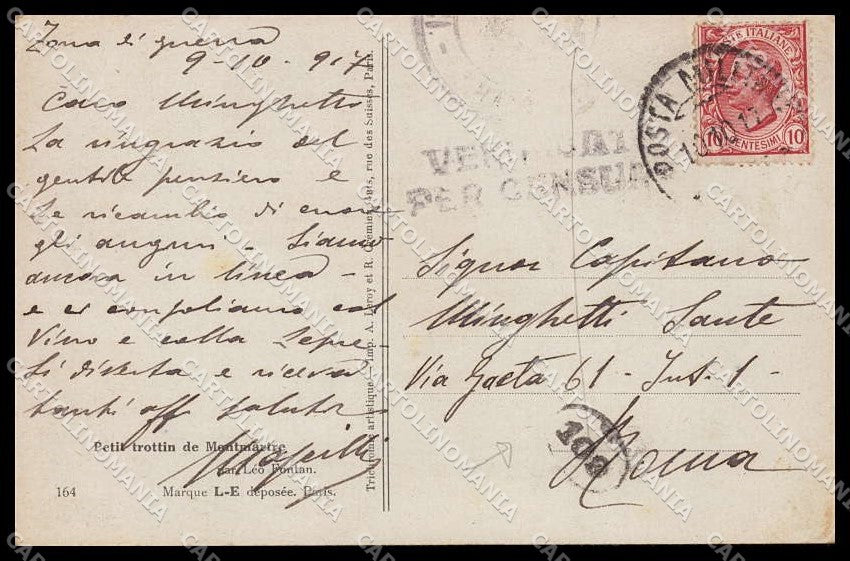 Zona di guerra
9-10-917
Caro Minghetti
La ringrazio del
gentile pensiero e
Le ricambio di cuore
gli auguri. Siamo
ancora in linea -
e ci consoliamo col
Vino e colla Lepre -
Si diverta e riceva
tanti aff saluti
Petit trottin de Montmartre
par Léo Fontan.
164
Marque L-E déposée. Paris.
Tricromie artistique. — Imp. A. Leroy et R. Crémieu, rue des Suisses, Paris.
VERIFICAT
PER CENSURA
POSTA MILITARE
10.10.17
POSTE ITALIANE
10 CENTESIMI 10
Signor Capitano
Minghetti Sante
Via Gaeta 61 - Int. 1 -
Roma
100
CARTOLINOMANIA